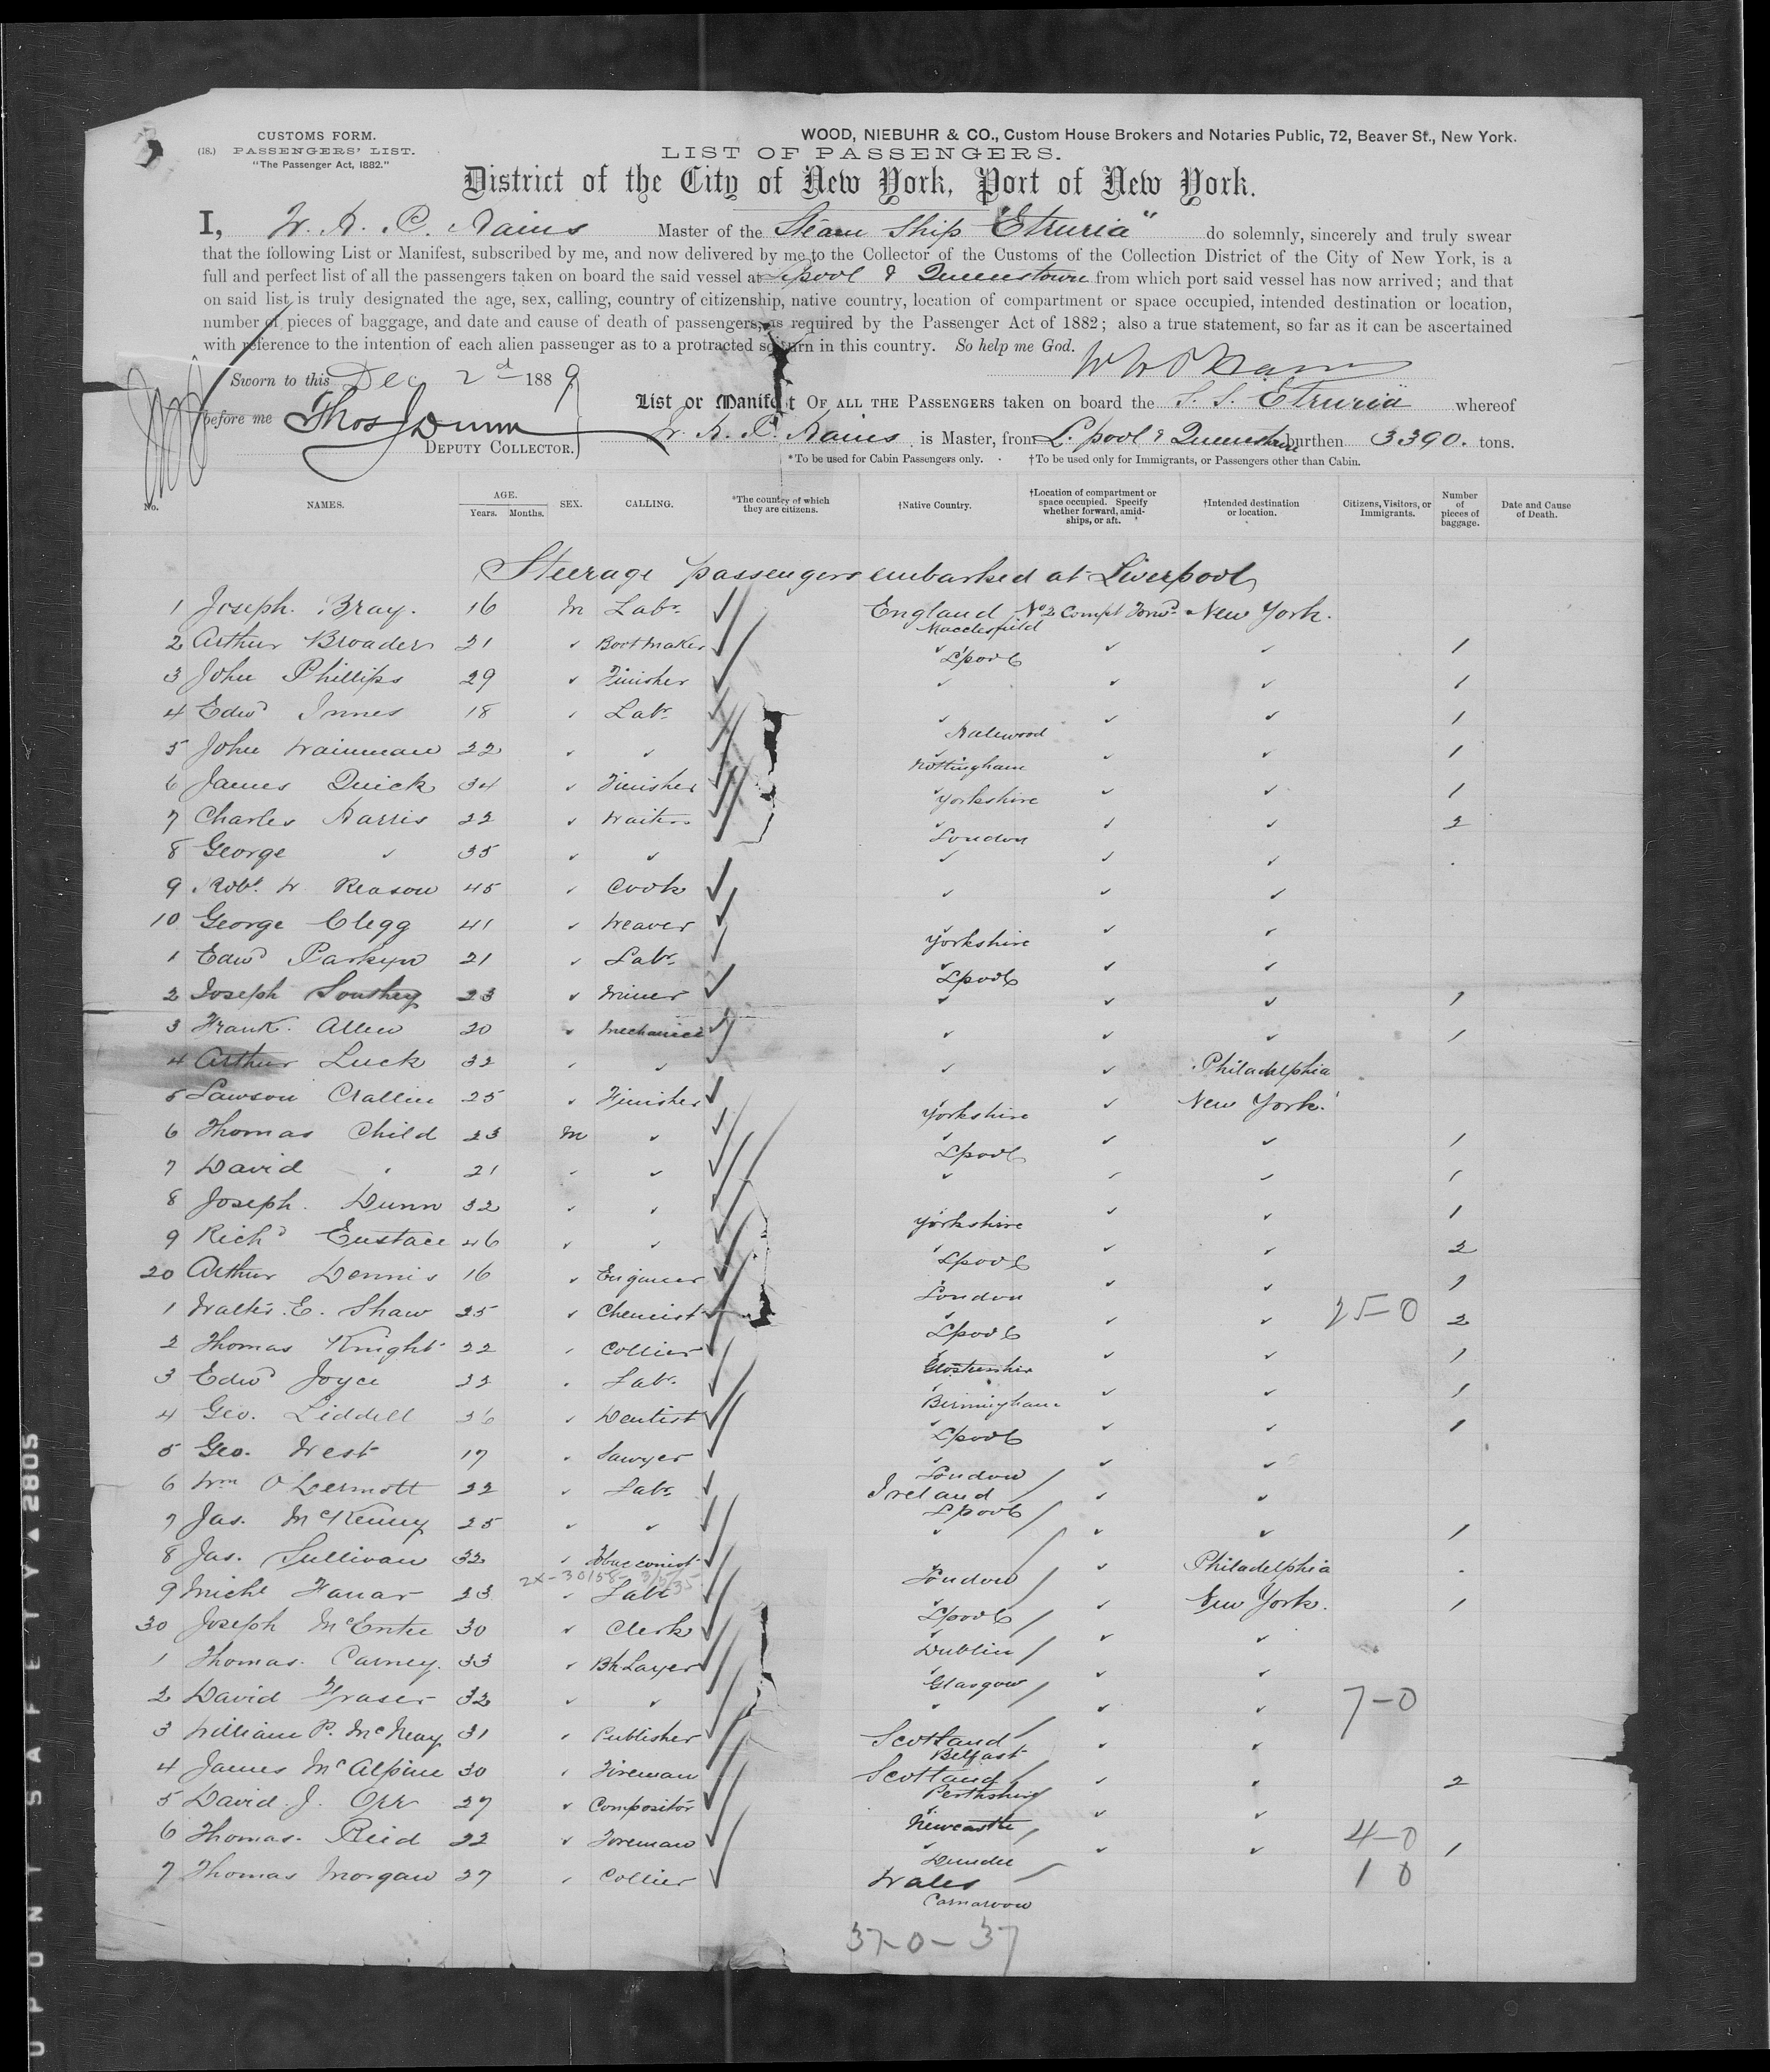 CUSTOMS FORM.
(18.) PASSENGERS' LIST.
"The Passenger Act, 1882."
WOOD, NIEBUHR & CO., Custom House Brokers and Notaries Public, 72, Beaver St., New York.
LIST OF PASSENGERS.
District of the City of New York, Port of New York.
I, W. H. P. Hains Master of the Steam Ship "Etruria" do solemnly, sincerely and truly swear
that the following List or Manifest, subscribed by me, and now delivered by me to the Collector of the Customs of the Collection District of the City of New York, is a
full and perfect list of all the passengers taken on board the said vessel at L'pool & Queenstown from which port said vessel has now arrived; and that
on said list is truly designated the age, sex, calling, country of citizenship, native country, location of compartment or space occupied, intended destination or location,
number of pieces of baggage, and date and cause of death of passengers, as required by the Passenger Act of 1882; also a true statement, so far as it can be ascertained
with reference to the intention of each alien passenger as to a protracted sojourn in this country. So help me God.
Sworn to this Dec 2d 1889
before me Thos J Dunn
DEPUTY COLLECTOR.
List or Manifest OF ALL THE PASSENGERS taken on board the S. S. Etruria whereof
W. H. P. Hains is Master, from L'pool & Queenstown burthen 3390. tons.
*To be used for Cabin Passengers only. †To be used only for Immigrants, or Passengers other than Cabin.
No. NAMES. AGE. Years. Months. SEX. CALLING. *The country of which they are citizens. †Native Country. †Location of compartment or space occupied. Specify whether forward, amidships, or aft. †Intended destination or location. Citizens, Visitors, or Immigrants. Number of pieces of baggage. Date and Cause of Death.
Steerage passengers embarked at Liverpool
1 Joseph Bray. 16 M Labr. England Macclesfield No 2 Compt Forwd New York.
2 Arthur Broader 21 Bootmaker L'pool 1
3 John Phillips 29 Finisher 1
4 Edwd Innes 18 Labr. 1
5 John Wainman 22 Halewood 1
6 James Quick 34 Finisher Nottingham 1
7 Charles Harris 22 Waiter Yorkshire 2
8 George 35 London
9 Robt. W Reason 45 Cook
10 George Clegg 41 Weaver
1 Edwd Parkyn 21 Labr. Yorkshire
2 Joseph Southey 23 Miner L'pool 1
3 Frank. Allen 20 Mechanic 1
4 Arthur Luck 32 Philadelphia
5 Lawson Crallin 25 Finisher New York.
6 Thomas Child 23 M Yorkshire 1
7 David 21 L'pool 1
8 Joseph. Dunn 32 1
9 Richd Eustace 46 Yorkshire 2
20 Arthur Dennis 16 Engineer L'pool 1
1 Walter. E. Shaw 25 Chemist London 25-0 2
2 Thomas Knight 22 Collier L'pool 1
3 Edwd Joyce 22 Labr. Glostershire 1
4 Geo. Liddell 36 Dentist Birmingham 1
5 Geo. West 17 Sawyer L'pool
6 Wm O'Dermott 22 Labr. London Ireland
7 Jas. McKenny 25 L'pool 1
8 Jas. Sullivan 32 Tobacconist Philadelphia
2X-30158- 3/5/35
9 Michl Hanar 23 Labr London New York. 1
30 Joseph McEntee 30 Clerk L'pool
1 Thomas. Carney. 33 Bk Layer Dublin
2 David Fraser 32 Glasgow 7-0
3 William P. McNeay 31 Publisher Scotland Belfast
4 James McAlpine 30 Fireman Scotland Perthshire 2
5 David. J. Orr 27 Compositor Newcastle
6 Thomas. Reid 22 Foreman Dundee 4-0 1
7 Thomas Morgan 27 Collier Wales Carnarvon 1 0
37-0-37
UPONT SAFETY ▲ 2805